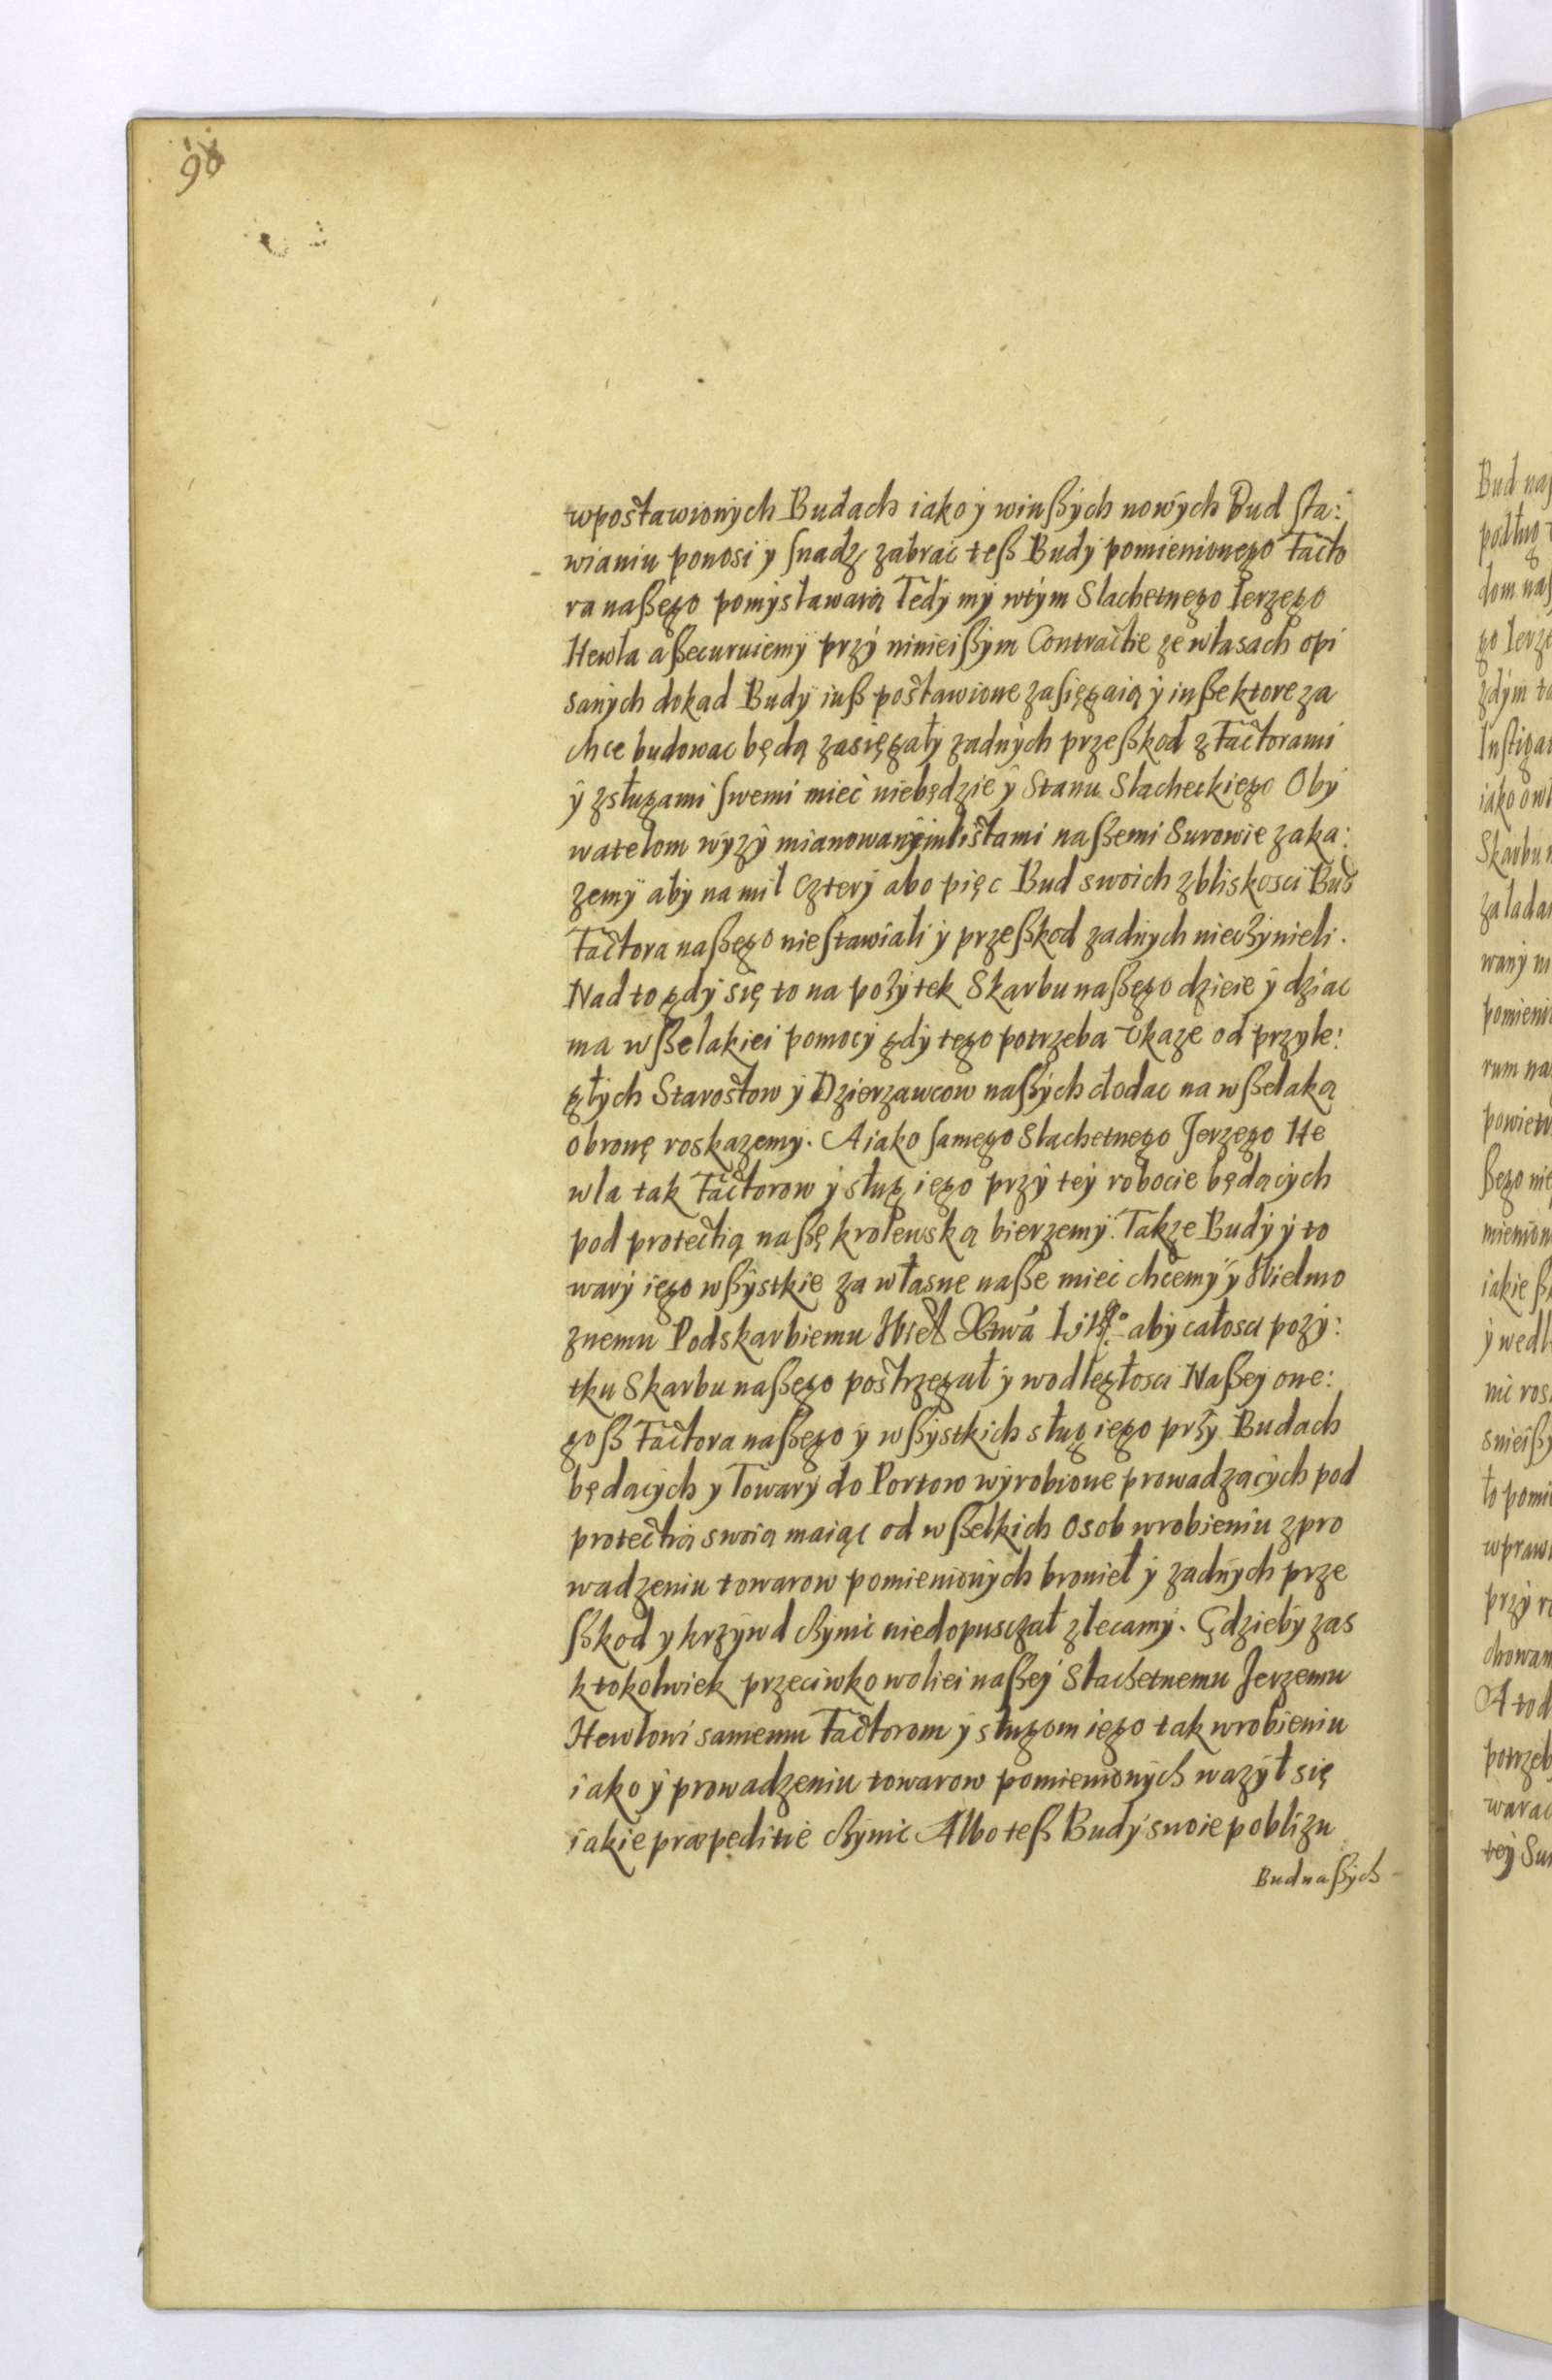 96
wpostawionÿch Budach iako ÿ winßÿch nowÿch Bud sta:
wianiu ponosi ÿ snadz zabrac teß Budÿ pomienionego facto
ra naßego pomÿslawaią Tedÿ mÿ wtÿm Slachetnego Ierzego
Hewla aßecuruiemÿ przÿ ninieißÿm Contractie ze wlasach opi
sanÿch dokad Budÿ iuß postawione zasięgaią ÿ inße ktore za
chce budowac będą zasięgałÿ zadnÿch przeßkod z factorami
ÿ zsługami swemi miec niebędzie ÿ Stanu Slacheckiego Obÿ
watelom wÿzÿ mianowanÿm listami naßemi Surowie zaka:
zemÿ abÿ na mil czterÿ abo pięc Bud swoich zbliskosci Bud
factora naßego nie stawiali ÿ przeßkod zadnÿch nieczÿnieli.
Nad to gdÿ się to na pozÿtek Skarbu naßego dzieie ÿ dziac
ma wßelakiei pomocÿ gdÿ tego potrzeba vkaze od przÿle:
głÿch Starostow ÿ Dzierzawcow naßÿch dodac na wßelaką
obronę roskazemÿ. A iako samego Slachetnego Jerzego He
wla tak factorow ÿ sług iego przÿ teÿ robocie będącÿch
pod protectią naßę krolewską bierzemÿ. Takze Budÿ ÿ to
warÿ iego wßÿstkie za własne naße miec chcemÿ ÿ Wielmo
znemu Podskarbiemu Wiel Xtwa Litt° abÿ całosci pozÿ:
tku Skarbu naßego postrzegał ÿ wodległosci Naßeÿ one:
goß factora naßego ÿ wßÿstkich sług iego przÿ Budach
będacÿch ÿ Towarÿ do Portow wÿrobione prowadzącÿch pod
protectią swoią maiąc od wßelkich osob wrobieniu zpro
wadzeniu towarow pomienionÿch bronieł ÿ zadnÿch prze
ßkod ÿ krzÿwd czÿnic niedopusczał zlecamÿ. Gdziebÿ zas
ktokolwiek przeciwko woliei naßeÿ Slachetnemu Jerzemu
Hewlowi samemu factorom ÿ sługom iego tak wrobieniu
iako ÿ prowadzeniu towarow pomienionÿch wazÿł się
iakie præpeditie czÿnic Albo teß Budÿ swoie poblizu
Bud naßÿch